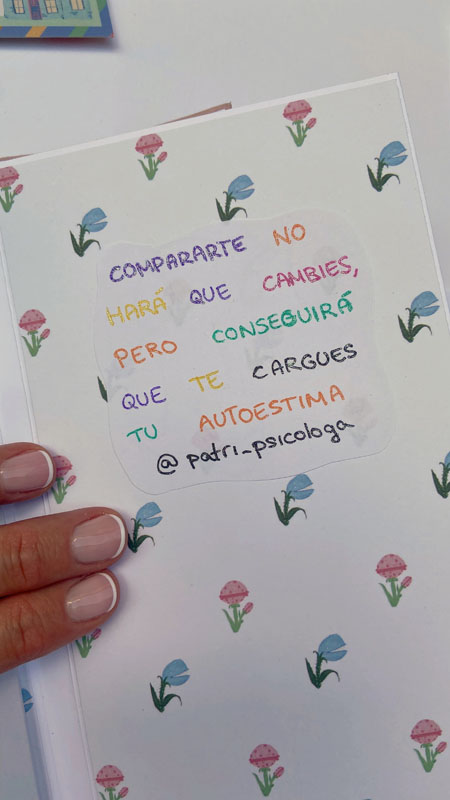 COMPARARTE NO
HARÁ QUE CAMBIES,
PERO CONSEGUIRÁ
QUE TE CARGUES
TU AUTOESTIMA
@patri_psicologa